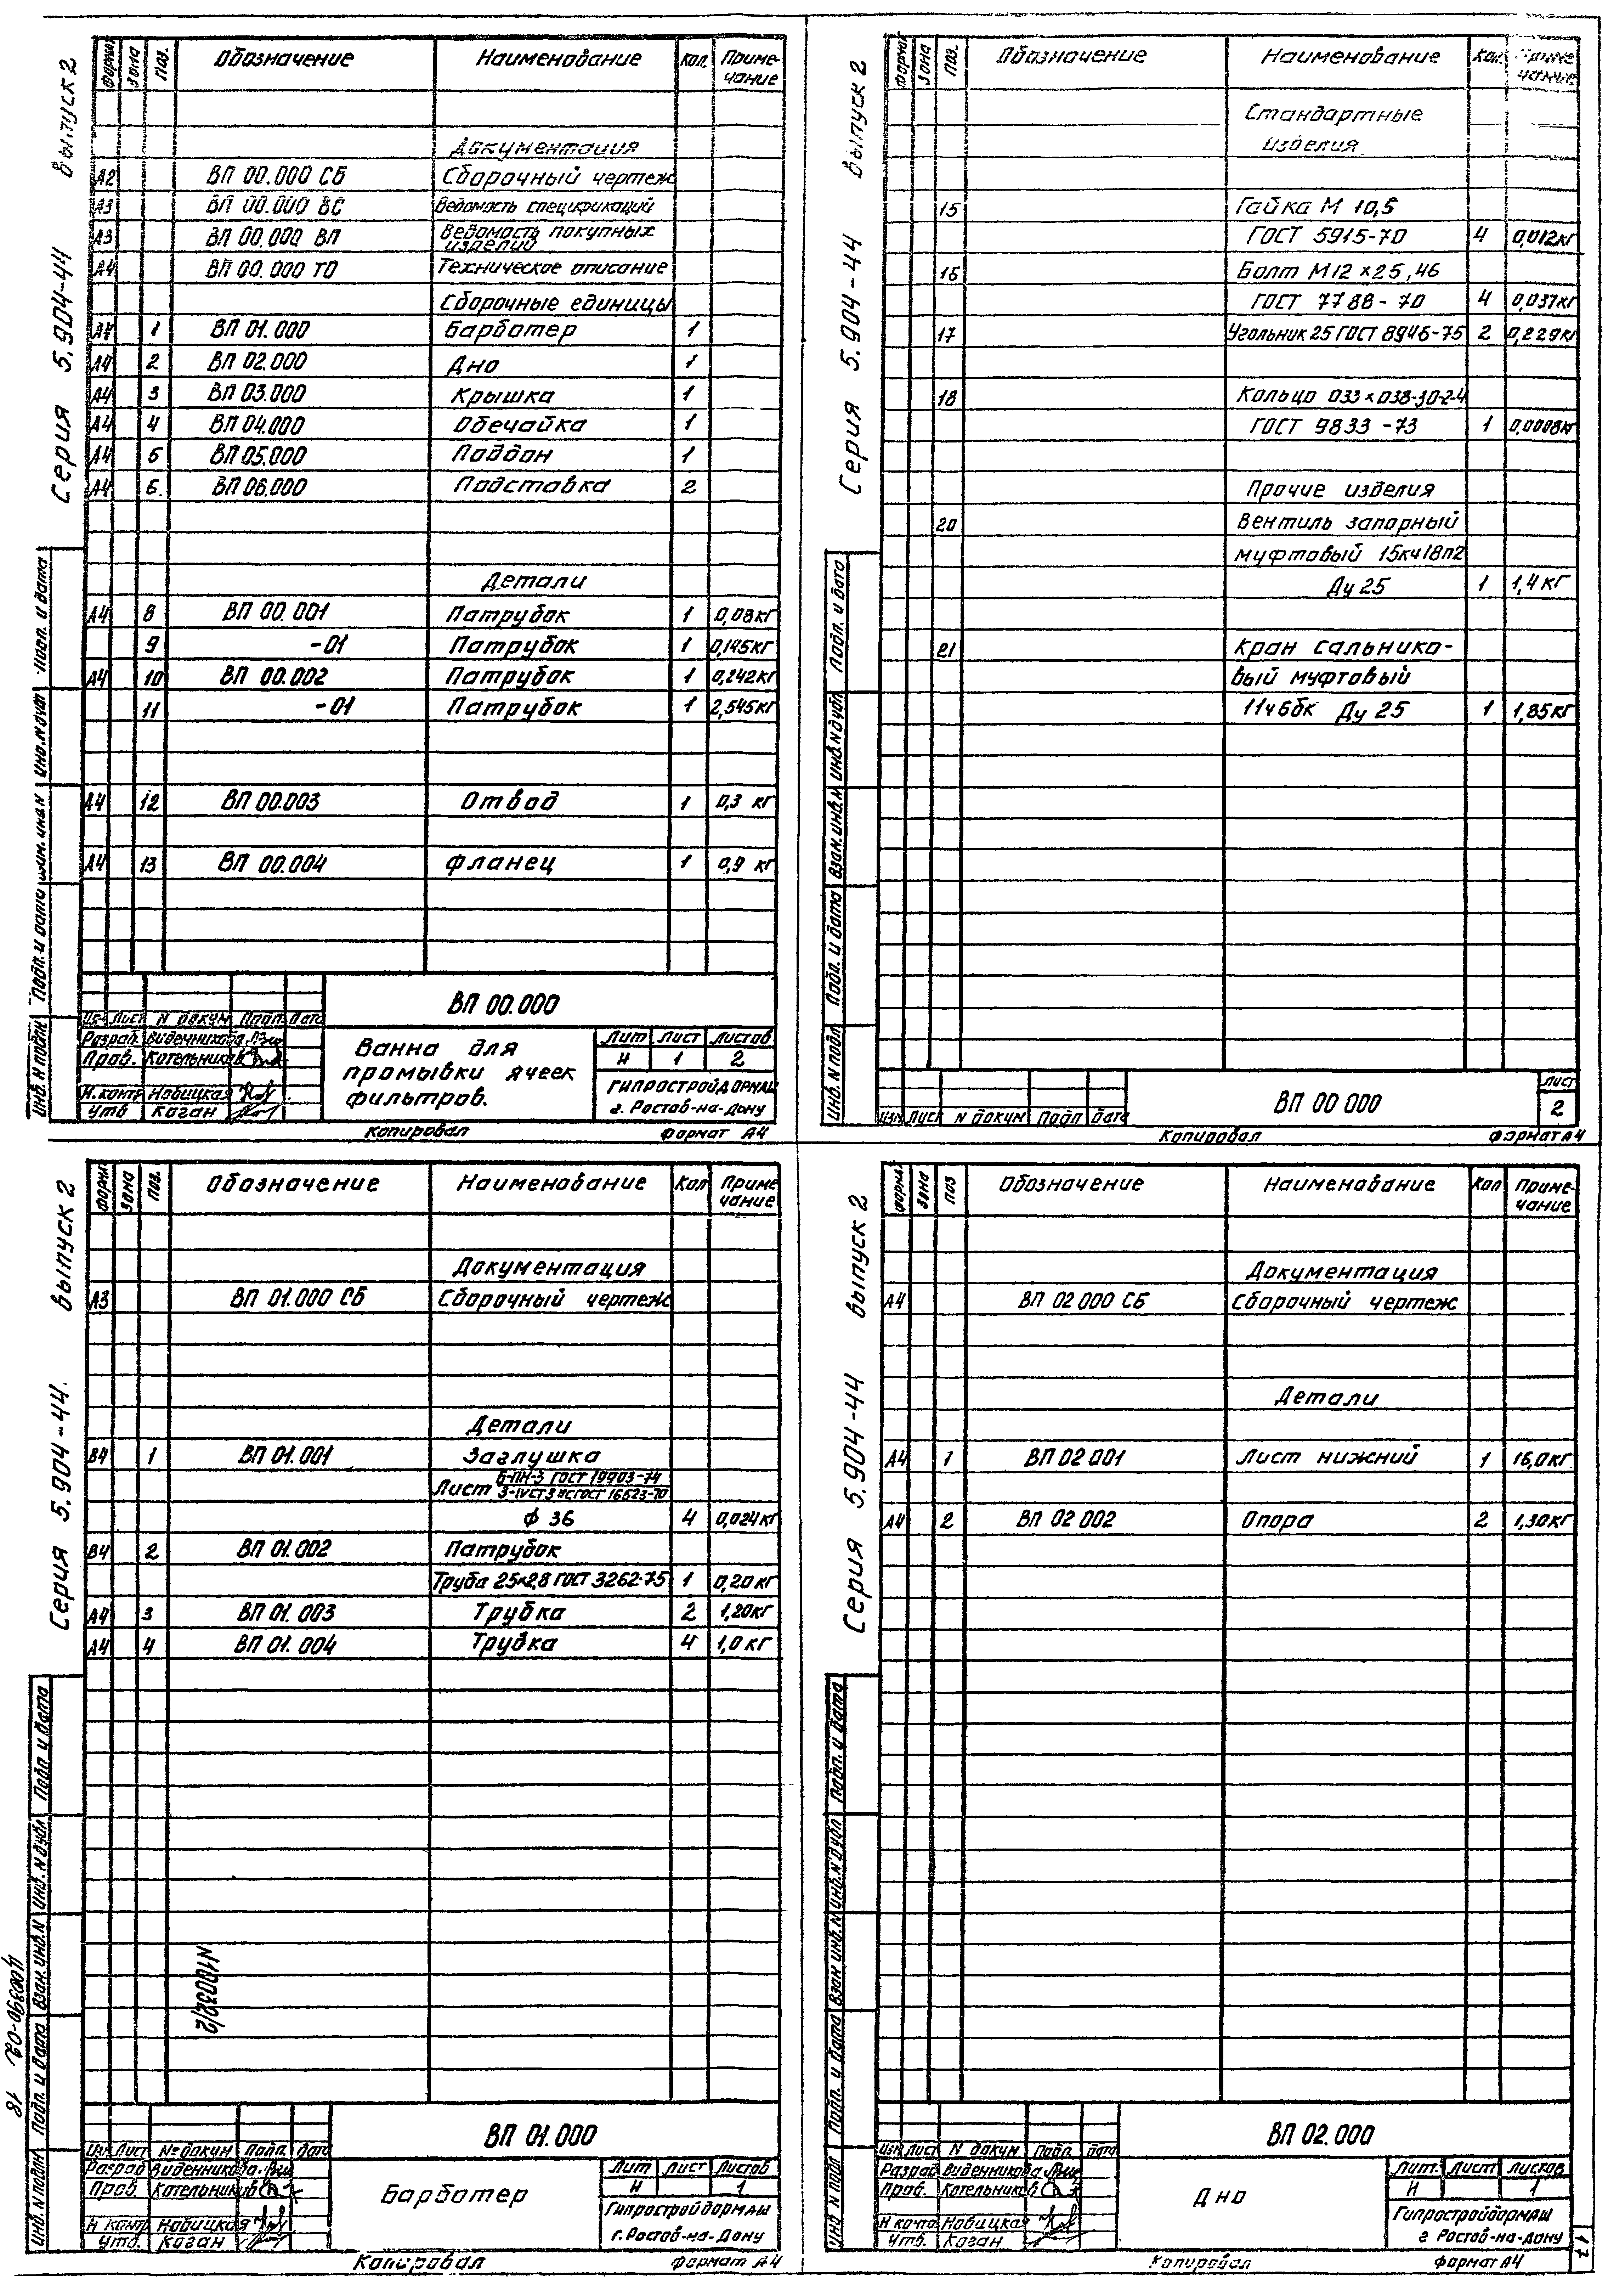 Серия 5.904-44 выпуск 2
Формат Зона Поз. Обозначение Наименование Кол. Приме-
чание
Документация
А2 ВП 00.000 СБ Сборочный чертеж
А3 ВП 00.000 ВС Ведомость спецификаций
А3 ВП 00.000 ВП Ведомость покупных
изделий
А4 ВП 00.000 ТО Техническое описание
Сборочные единицы
А4 1 ВП 01.000 Барботер 1
А4 2 ВП 02.000 Дно 1
А4 3 ВП 03.000 Крышка 1
А4 4 ВП 04.000 Обечайка 1
А4 5 ВП 05.000 Поддон 1
А4 6. ВП 06.000 Подставка 2
Детали
А4 8 ВП 00.001 Патрубок 1 0,08кг
9 -01 Патрубок 1 0,145кг
А4 10 ВП 00.002 Патрубок 1 0,242кг
11 -01 Патрубок 1 2,545кг
А4 12 ВП 00.003 Отвод 1 0,3 кг
А4 13 ВП 00.004 Фланец 1 0,9 кг
Подп. и дата
Инв. N дубл
Взам. инв. N
Подп. и дата
Инв. N подл
ВП 00.000
Изм Лист N докум Подп. Дата
Разраб. Виденникова
Пров. Котельников
Н.контр Новицкая
Утв Коган
Ванна для
промывки ячеек
фильтров.
Лит Лист Листов
И 1 2
ГИПРОСТРОЙДОРМАШ
г. Ростов-на-Дону
Копировал Формат А4
Серия 5.904-44 выпуск 2
Формат Зона Поз. Обозначение Наименование Кол. Приме
чание
Стандартные
изделия
15 Гайка М 10,5
ГОСТ 5915-70 4 0,012кг
16 Болт М12×25,46
ГОСТ 7788-70 4 0,037кг
17 Угольник 25 ГОСТ 8946-75 2 0,229кг
18 Кольцо 033×038-30-2-4
ГОСТ 9833-73 1 0,0008кг
Прочие изделия
20 Вентиль запорный
муфтовый 15кч18п2
Ду 25 1 1,4 кг
21 Кран сальнико-
вый муфтовый
11ч6бк Ду 25 1 1,85кг
Подп. и дата
Инв. N дубл
Взам. инв. N
Подп. и дата
Инв. N подл
Изм Лист N докум Подп Дата
ВП 00 000
Лист
2
Копировал Формат А4
Серия 5.904-44. выпуск 2
Формат Зона Поз. Обозначение Наименование Кол Приме
чание
Документация
А3 ВП 01.000 СБ Сборочный чертеж
Детали
В4 1 ВП 01.001 Заглушка
Лист Б-ПН-3 ГОСТ 19903-74
3-IV Ст3 пс ГОСТ 16523-70
Ф 36 4 0,024кг
В4 2 ВП 01.002 Патрубок
Труба 25×2,8 ГОСТ 3262-75 1 0,20 кг
А4 3 ВП 01.003 Трубка 2 1,20кг
А4 4 ВП 01.004 Трубка 4 1,0 кг
Подп. и дата
Инв. N дубл
Взам. инв. N
Подп. и дата
Инв. N подл
18
ВП 01.000
Изм Лист № докум Подп. Дата
Разраб Виденникова
Пров. Котельников
Н контр Новицкая
Утв. Коган
Барботер
Лит Лист Листов
И 1
Гипростройдормаш
г. Ростов-на-Дону
Копировал Формат А4
Серия 5.904-44 выпуск 2
Формат Зона Поз Обозначение Наименование Кол Приме-
чание
Документация
А4 ВП 02 000 СБ Сборочный чертеж
Детали
А4 1 ВП 02 001 Лист нижний 1 16,0кг
А4 2 ВП 02 002 Опора 2 1,30кг
Подп. и дата
Инв. N дубл
Взам инв. N
Подп. и дата
Инв N подл
ВП 02.000
Изм Лист N докум Подп. Дата
Разраб Виденникова
Пров. Котельников
Н контр Новицкая
Утв. Коган
Дно
Лит. Лист Листов
И 1
Гипростройдормаш
г Ростов-на-Дону
Копировал Формат А4
17